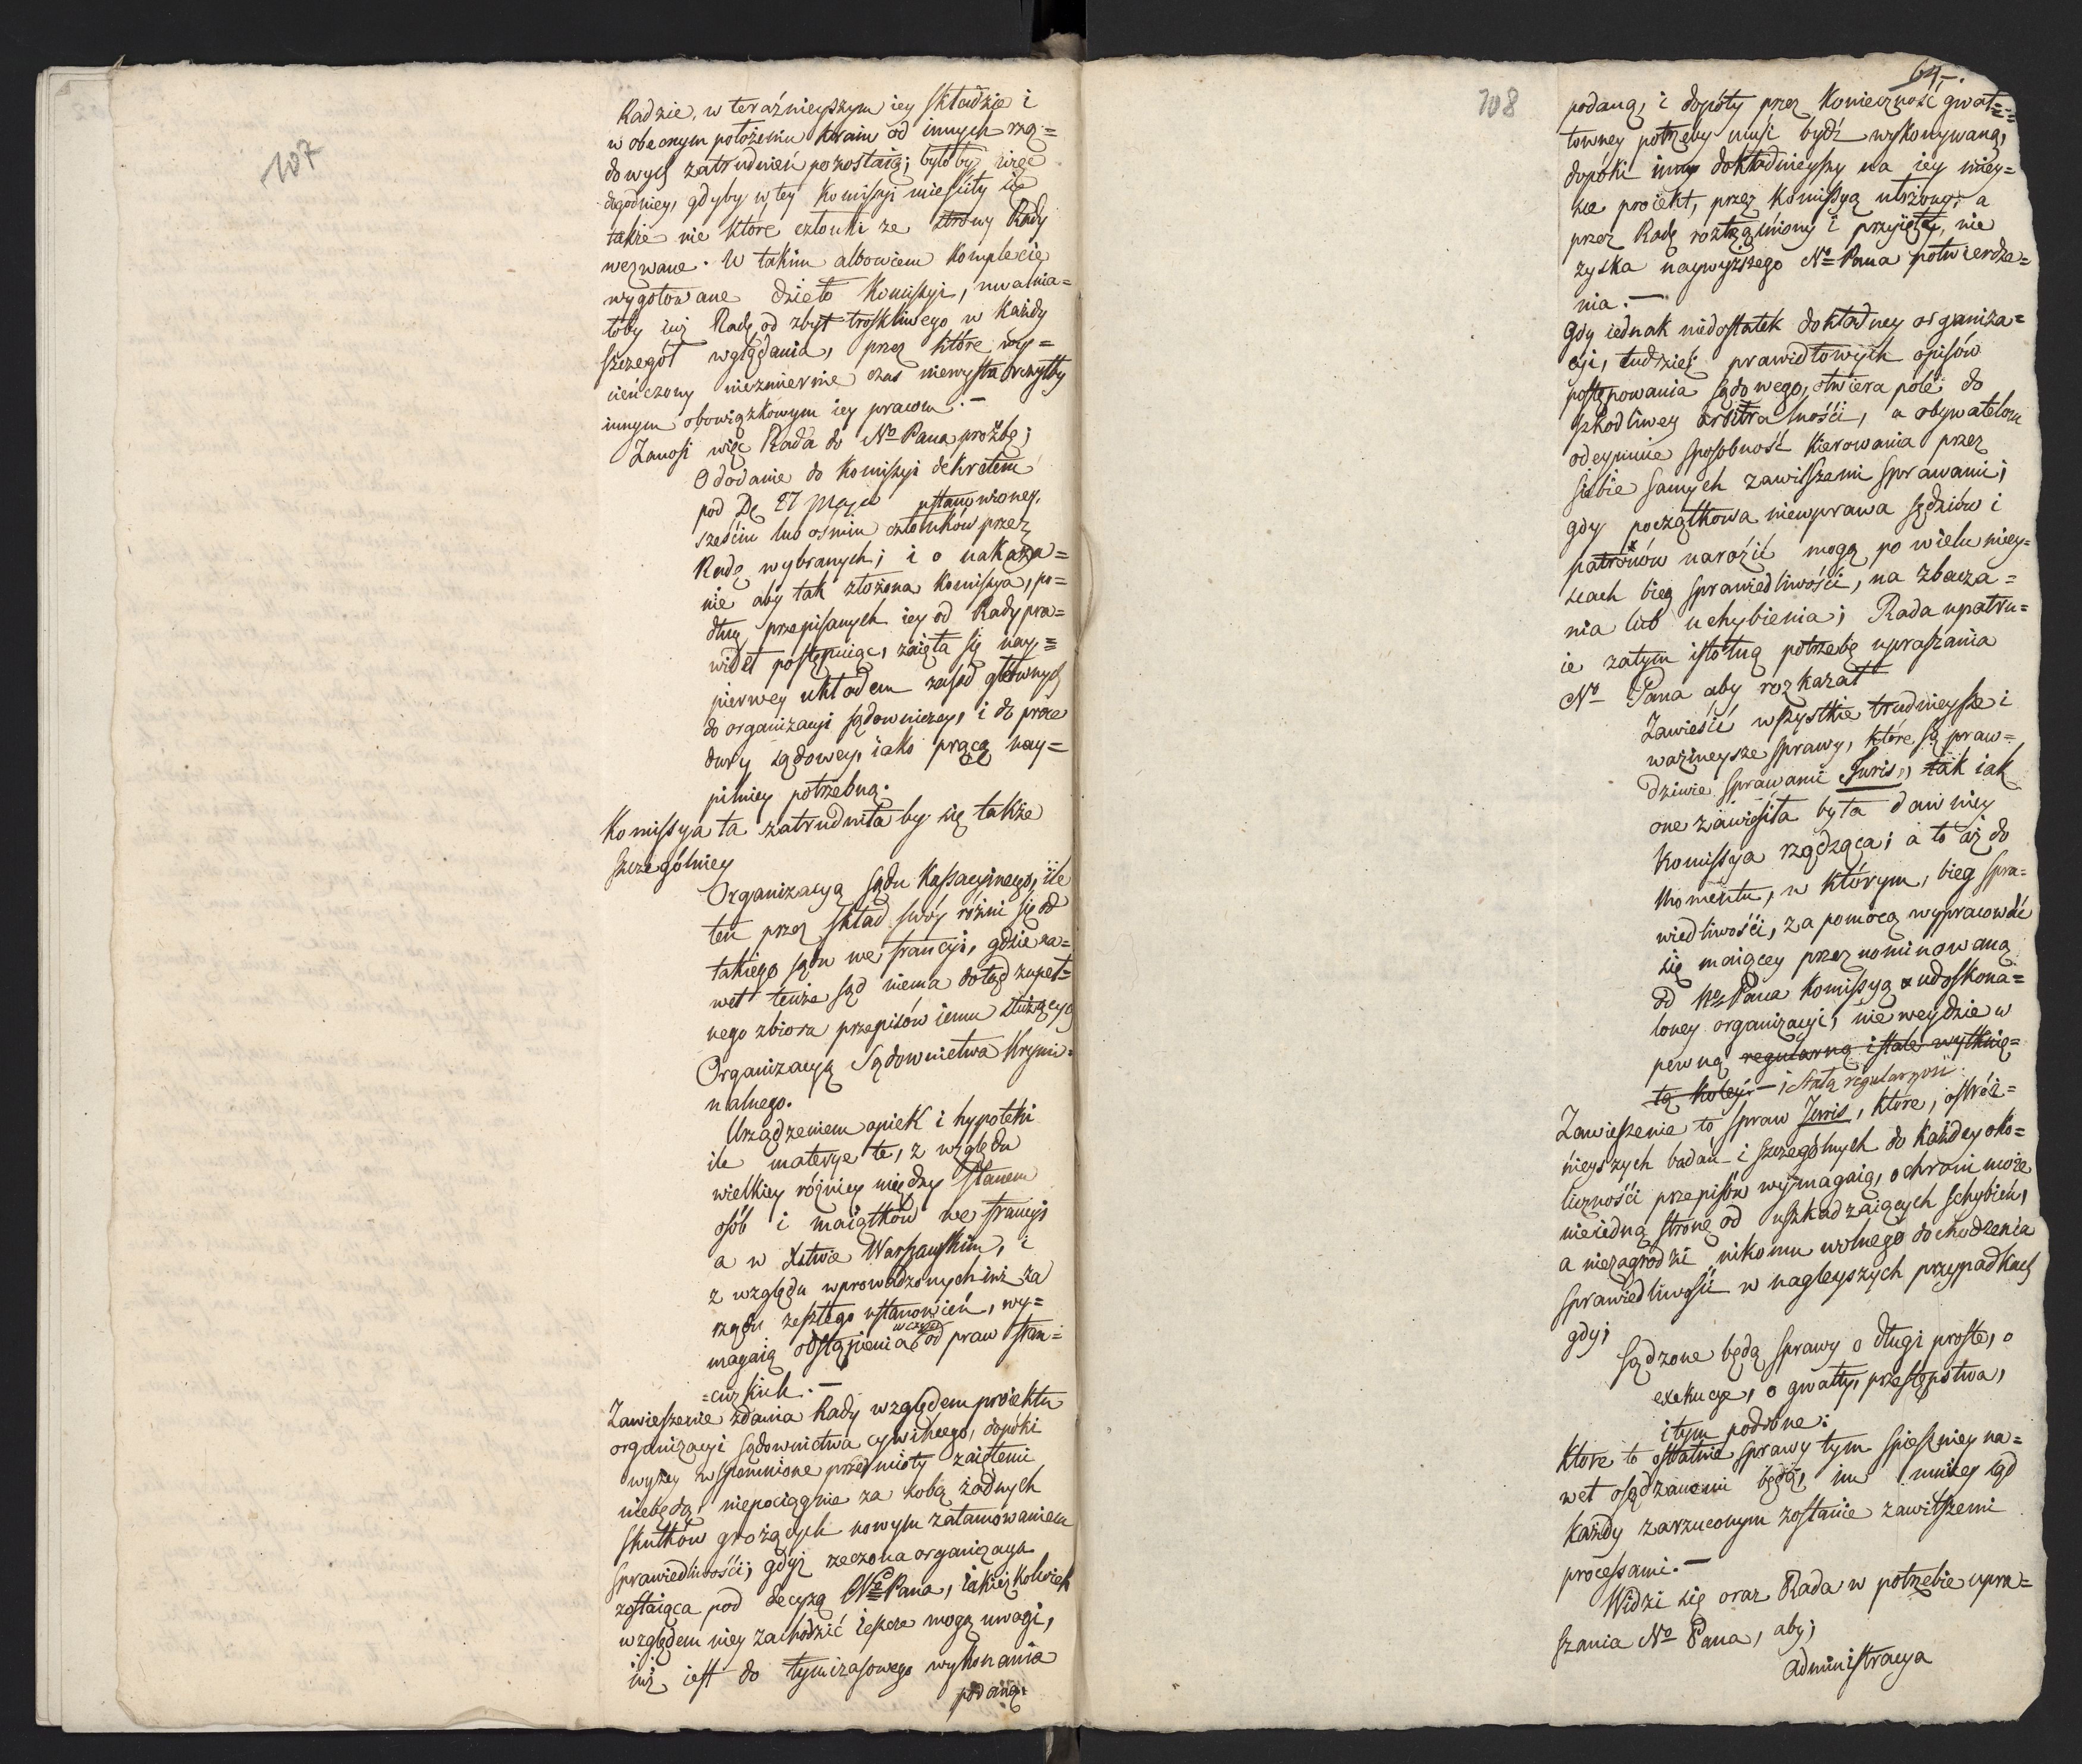 107
Radzie, w teraźnieyszym iey składzie i
w obecnym położeniu kraiu od innych rzą=
dowych zatrudnień pozostaią; byłoby więc
dogodniey, gdyby w tey Komissyi mieściły się
także nie które członki ze strony Rady
wezwane. W takim albowiem komplecie
wygotowane dzieło Komissyi, uwalnia=
łoby iuż Radę od zbyt troskliwego w każdy
szczegół wglądania, przez które wy=
cieńczony niezmiernie czas niewystarczyłby
innym obowiązkowym iey pracom. —
Zanosi więc Rada do No Pana proźbę;
O dodanie do Komissyi dekretem
pod D. 27 Maja ustanowioney,
sześciu lub ośmiu członków przez
Radę wybranych; i o nakaza=
nie aby tak złożona Komissya, po=
dług przepisanych iey od Rady pra=
wideł postępuiąc, zaięła się nay=
pierwey układem zasad głównych
do organizacyi sądowniczey, i do proce
dury sądowey, iako pracą nay=
pilniey potrzebną.
Komissya ta zatrudniła by się także
szczególniey
Organizacyą Sądu Kassacyinego, ile
ten przez skład swóy różni się od
takiego sądu we francyi, gdzie na=
wet tenże sąd niema dotąd zupeł=
nego zbioru przepisów iemu służących
Organizacyą Sądownictwa Krymi=
nalnego.
Urządzeniem opiek i hypoteki
ile materye te, z względu
wielkiey różnicy między stanem
osób i maiątków we francyi
a w Xstwie Warszawskim, i
z względu wprowadzonych iuż za
rządu zeszłego ustanowień, wy=
magaią odstąpienia w części od praw fran=
=cuzkich. —
Zawieszenie zdania Rady względem proiektu
organizacyi sądownictwa cywilnego, dopóki
wyżey wspomnione przedmioty zaiętemi
niebędą, niepociągnie za sobą żadnych
skutków grożących nowym zatamowaniem
sprawiedliwości; gdyż rzeczona organizacya
zostaiąca pod decyzą No Pana, iakieżkolwiek
względem niey zachodzić ieszcze mogą uwagi,
iuż iest do tymczasowego wykonania
podaną.
64.
108
podaną, i dopóty przez konieczność gwał=
towney potrzeby musi bydź wykonywaną,
dopóki inny dokładnieyszy na iey miey=
sce proiekt, przez Komissyą ułożony, a
przez Radę roztrząśniony i przyięty, nie
zyska naywyższego No Pana potwierdze=
nia. —
Gdy iednak niedostatek dokładney organiza=
cyi, tudzież prawidłowych opisów
postępowania sądowego, otwiera pole do
szkodliwey arbitralności, a obywatelom
odeymuie sposobność kierowania przez
siebie samych zawilszemi sprawami;
gdy początkowa niewprawa sędziów i
patronów narazić mogą po wielu miey=
scach bieg sprawiedliwości, na zbacza=
nia lub uchybienia; Rada upatru=
ie zatym istotną potrzebę upraszania
No Pana aby rozkazał
Zawiesić wszystkie trudnieysze i
ważnieysze sprawy, które są praw=
dziwie sprawami Juris, tak iak
one zawiesiła była dawniey
Komissya rządząca; a to aż do
momentu, w którym, bieg spra=
wiedliwości, za pomocą wypracować
się maiącey przez nominowaną
od No Pana Komissyą udoskona=
loney organizacyi, nie weydzie w
pewną regularną i stale wytknię=
tą koley. — i stałą regularność.
Zawieszenie to spraw Juris, które, ostroż=
nieyszych badań i szczególnych do każdey oko=
liczności przepisów wymagaią, ochroni może
nieiedną stronę od uszkadzaiących schybień,
a niezagrodzi nikomu wolnego dochodzenia
sprawiedliwości w nagleyszych przypadkach
gdy;
Sądzone będą sprawy o długi proste, o
exekucye, o gwałty, przestępstwa,
i tym podobne:
Które to ostatnie sprawy tym spieszniey na=
wet osądzonemi będą, im mniey sąd
każdy zarzuconym zostanie zawilszemi
processami. —
Widzi się oraz Rada w potrzebie upra=
szania No Pana, aby;
Administracya